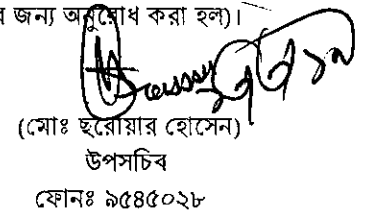 র জন্য অনুরোধ করা হল)।
(মোঃ ছরোয়ার হোসেন)
উপসচিব
ফোনঃ ৯৫৪৫০২৮